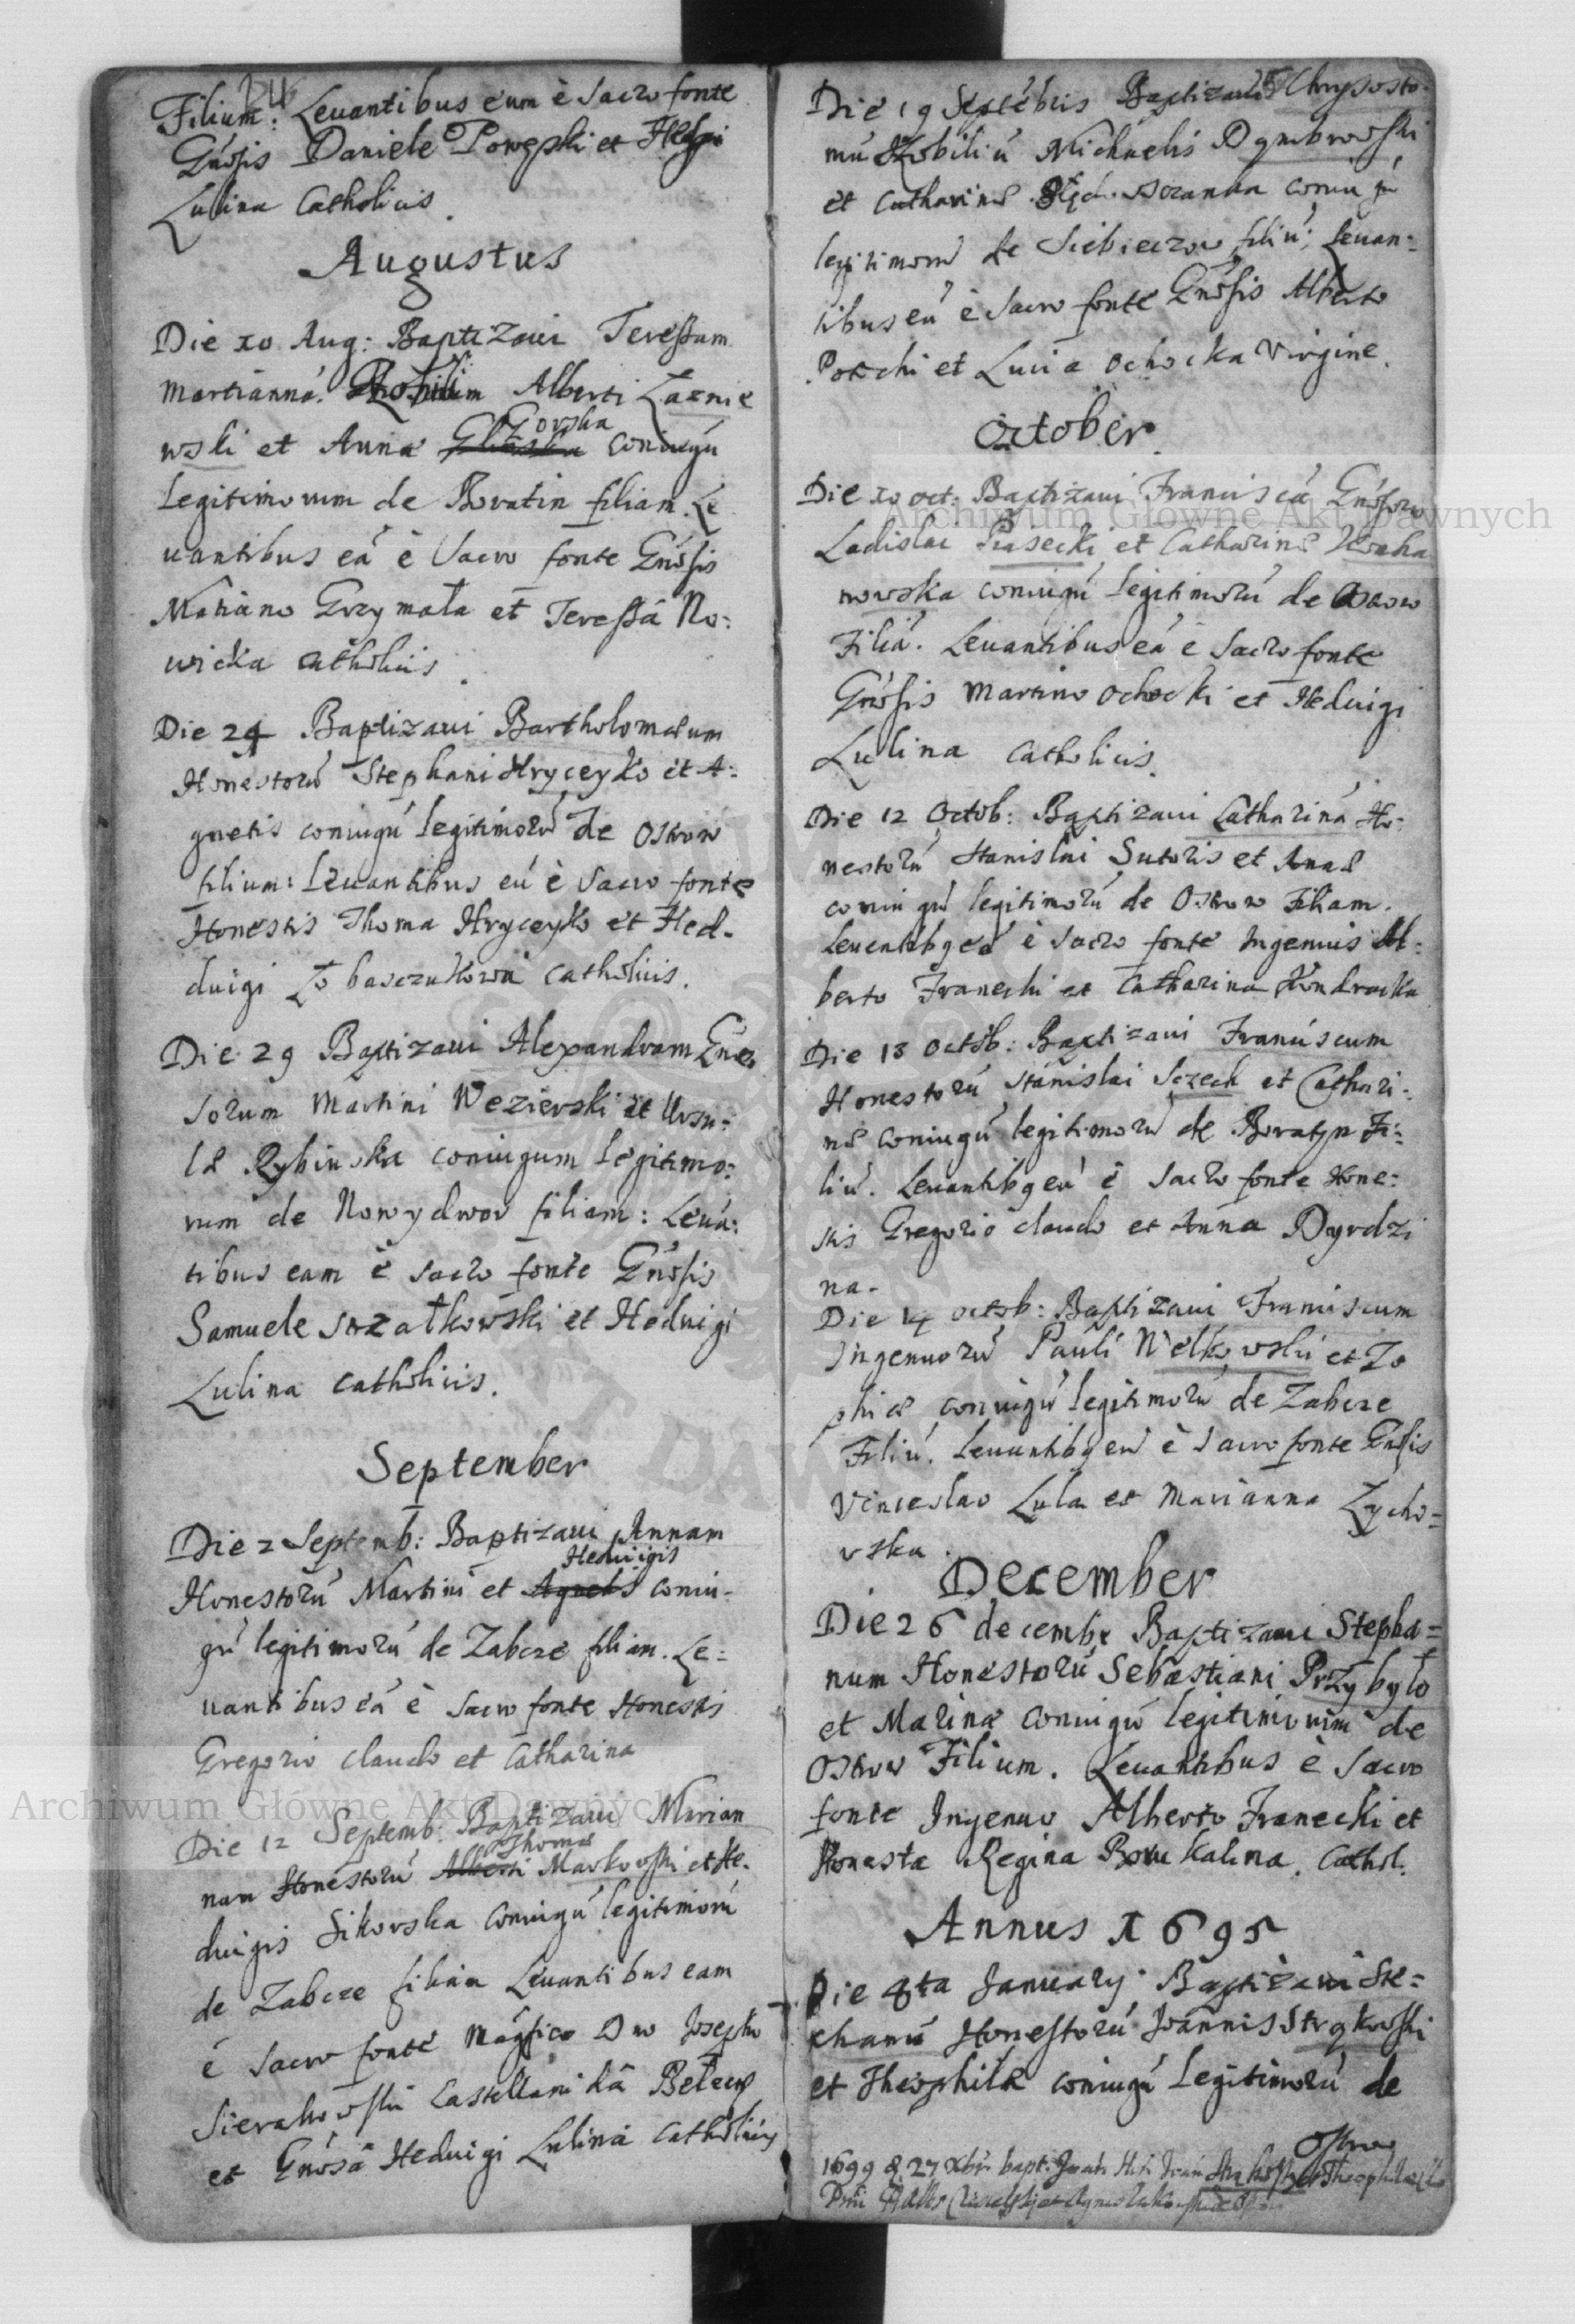 Filium: Levantibus eum è Sacro fonte
Gnōsis Daniele Powęski et Hedvigi
Lulina Catholicis.
Augustus
Die xo Aug: Baptizavi Teressam
Martianná. Alberti Łaznie
wski et Anna Gorska coniugú
legitimorum de Boratin filiam. Le
vantibus eá è Sacro fonte Gnōsis
Mariano Grzymała et Teressâ No:
wicka catholicis.
Die 24 Baptizavi Bartholomæum
Honestorú Stephani Hryceyko et A:
gnetis coniugú legitimorú de Ostrow
filium: Levantibus eú è Sacro fonte
Honestis Thoma Hryceyko et Hed-
duigi catholicis.
Die 29 Baptizavi Alexandram Gnō
sorum Martini Wezierski et Ursu:
læ Rybinska coniugum legitimo:
rum de Nowydwor filiam: Levá:
tibus eam è Sacro fonte Gnōsis
Samuele Strzałkowski et Hedvigi
Lulina catholicis.
September
Die 2 Septemb: Baptizavi Annam
Hedvigis
Honestorú Martini et Agnetis coniu-
gú legitimorú de Zabcze filiam. Le:
vantibus eá è Sacro fonte Honestis
Gregorio claudo et Catharina
Die 12 Septemb: Baptizavi Marian
Thomæ
nam Honestorú Alberti Markowski et He-
duigis Sikorska coniugú legitimorú
de Zabcze filiam Levantibus eam
è Sacro fonte Magfico Dno Josepho
Sierakowski Castellanidâ Belzen
et Gnōsâ Hedvigi Lulina Catholicis
Die 19 Septébris Baptizavi Chrysosto-
mú Nobiliú Michaelis Dąmbrowski
et Catharinæ coniugú
legitimorú de Siebieczow filiú; Levan:
tibus eú è Sacro fonte Gnōsis Alberto
Potcchi et Lucia Ochocka Virgine.
October.
Die xo oct: Baptizavi Franciscá Gnōsorú
Ladislai Piasecki et Catharinæ Kocha
nowska coniugú legitimorú de
Filiá. Levantibus eá è Sacro fonte
Gnōsis Martino Ochocki et Hedvigi
Lulina catholicis.
Die 12 Octob: Baptizavi Catharinâ Ho:
nestorú Stanislai Sutoris et Annæ
coniugú legitimorú de Ostrow Filiam.
Levantibq eá è Sacro fonte Ingenuis Al:
berto Franecki et Catharina Kondracka
Die 13 Octob: Baptizavi Franciscum
Honestorú Stanislai Szczech et Cathari:
næ coniugú legitimorú de Boratyn Fi:
liú. Levantibq eú è Sacro fonte Hone:
stis Gregorio claudo et Anna Dyrdzi
na.
Die 14 octob: Baptizavi Franciscum
Ingenuorú Pauli Wełkowski et Zo
phiæ coniugú legitimorú de Zabcze
Filiú. Levantibq eú è Sacro fonte Gnōsis
Vinceslao Lula et Marianna Zycho:
vska.
December
Die 26 decembr Baptizavi Stepha:
num Honestorú Sebastiani Przybyło
et Marinæ coniugú legitimorum de
Ostrow Filium. Levantibus è Sacro
fonte Ingenuo Alberto Franecki et
Honesta Regina Catholi:
Annus 1695
Die 4ta January Baptizavi Ste:
phanú Honestorú Joannis Strąkowski
et Theophilæ coniugú legitimorú de
Ostrow
1699 d. 27 Xbr. bapt.
Archiwum Główne Akt Dawnych
Archiwum Główne Akt Dawnych